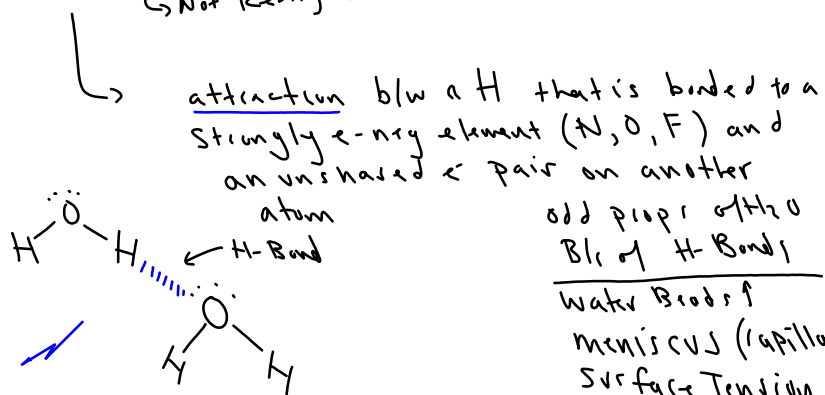 ↳ Not Really
attraction b/w a H that is bonded to a
strongly e-neg element (N, O, F) and
an unshared e⁻ pair on another
atom
H-Bond
O
H H
O
H H
odd props of H2O
B/c of H-Bonds
Water Beads↑
meniscus (capilla
Surface Tension